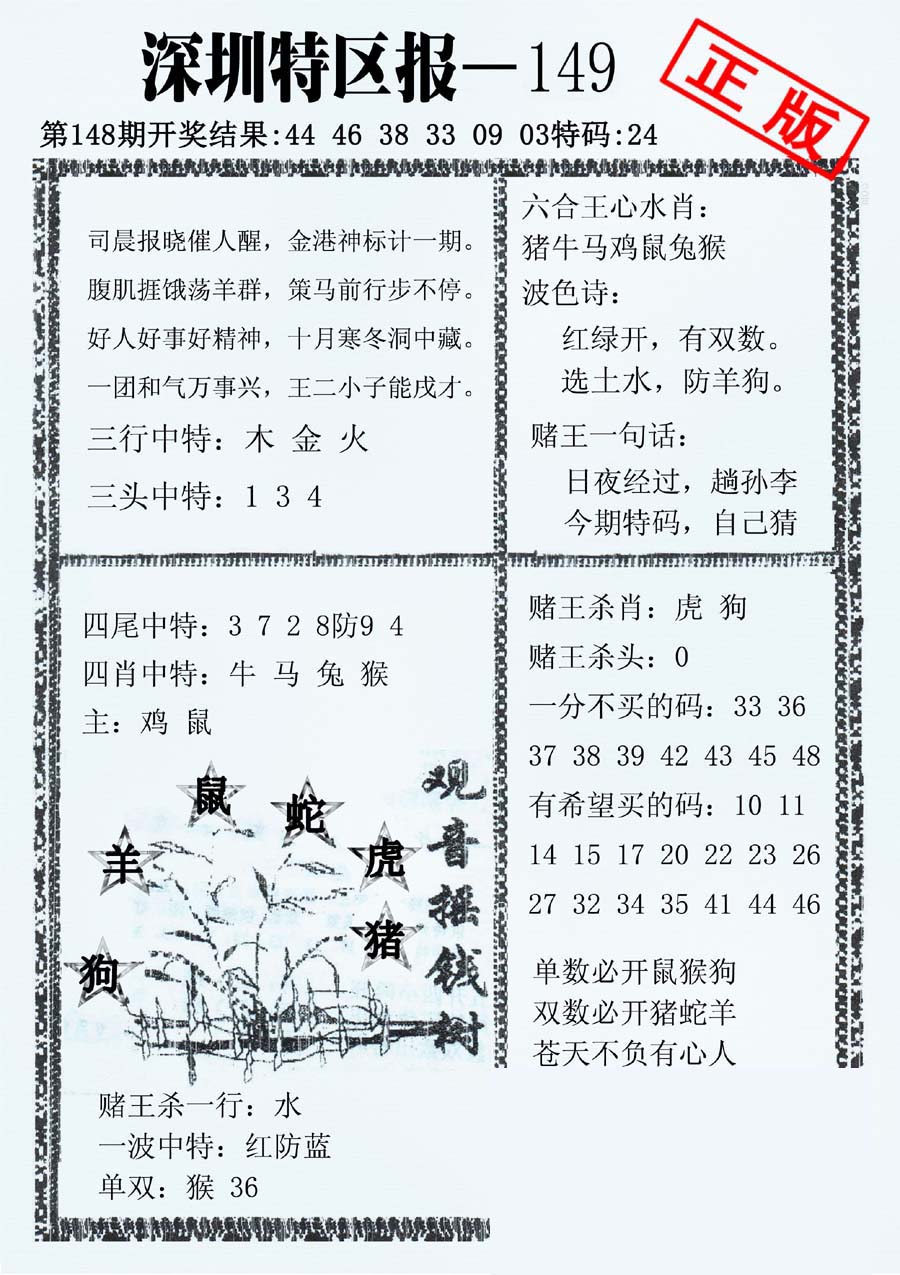 深圳特区报—149
正版
第148期开奖结果:44 46 38 33 09 03特码:24
司晨报晓催人醒，金港神标计一期。
腹肌捱饿荡羊群，策马前行步不停。
好人好事好精神，十月寒冬洞中藏。
一团和气万事兴，王二小子能戌才。
三行中特：木 金 火
三头中特：1 3 4
六合王心水肖：
猪牛马鸡鼠兔猴
波色诗：
红绿开，有双数。
选土水，防羊狗。
赌王一句话：
日夜经过，趟孙李
今期特码，自己猜
四尾中特：3 7 2 8防9 4
四肖中特：牛 马 兔 猴
主：鸡 鼠
观音摇钱树
鼠
蛇
羊
虎
猪
狗
赌王杀一行：水
一波中特：红防蓝
单双：猴 36
赌王杀肖：虎 狗
赌王杀头：0
一分不买的码：33 36
37 38 39 42 43 45 48
有希望买的码：10 11
14 15 17 20 22 23 26
27 32 34 35 41 44 46
单数必开鼠猴狗
双数必开猪蛇羊
苍天不负有心人